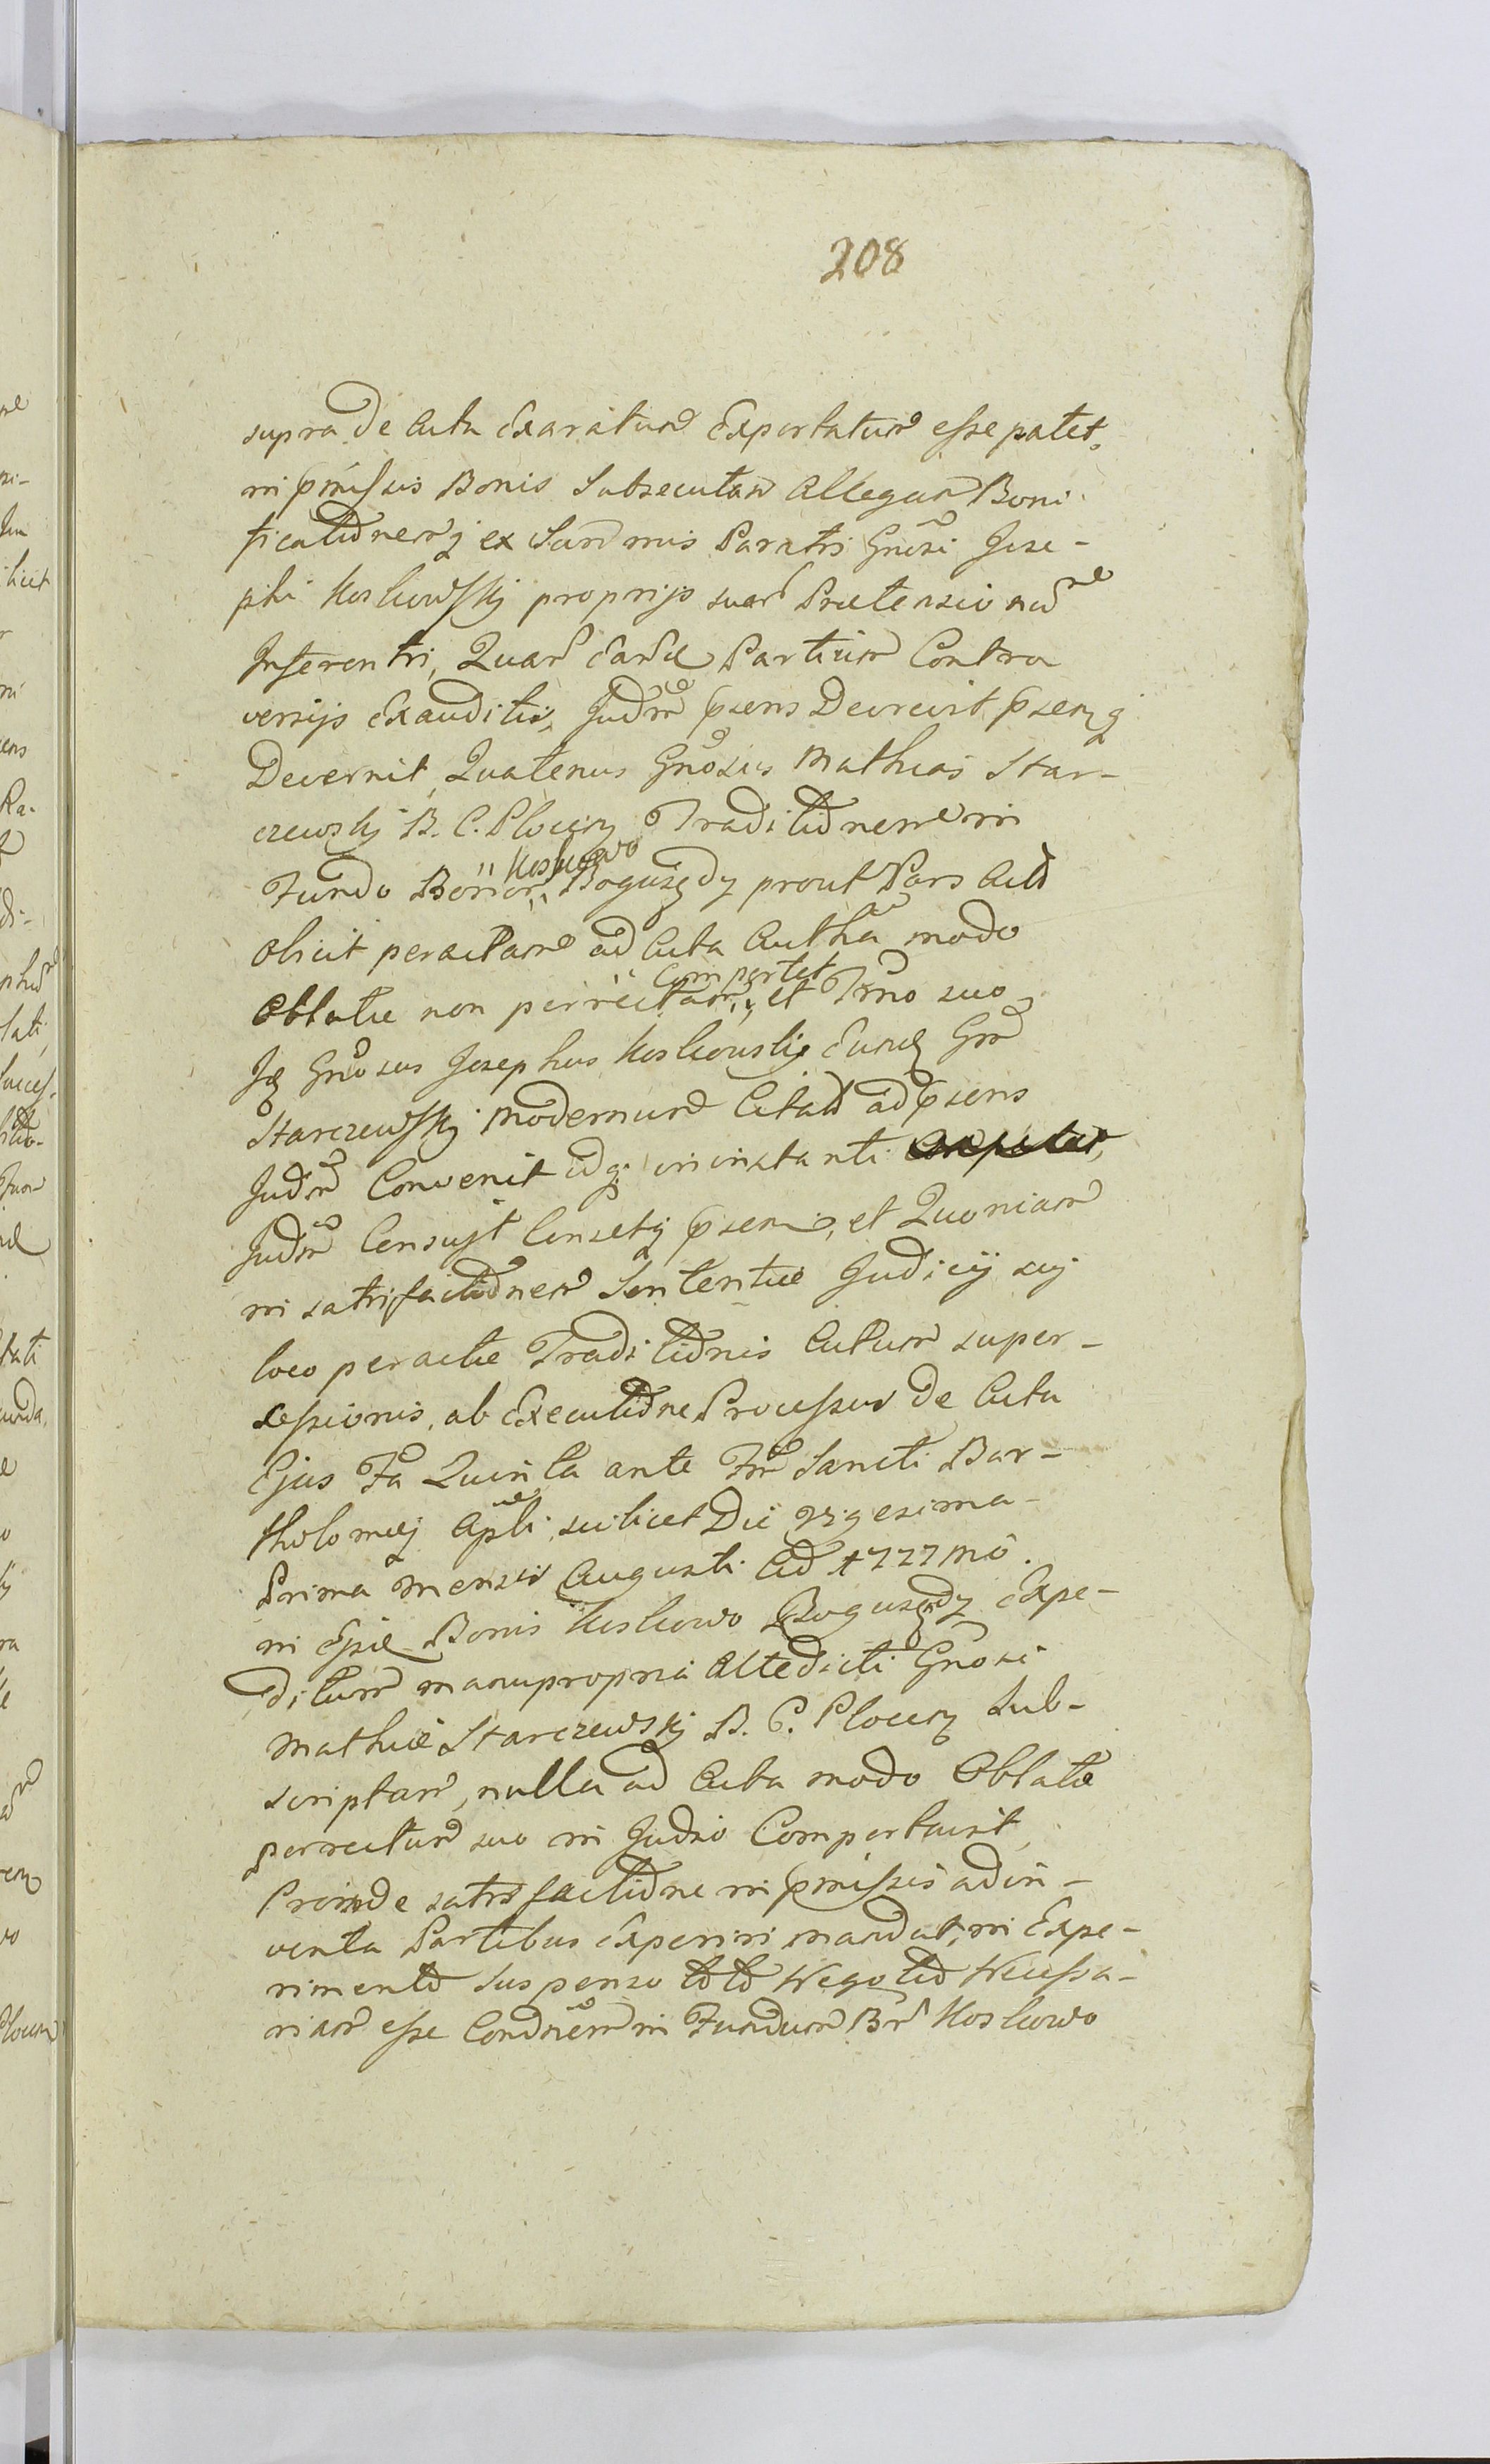 208
supra de Acta Exaratum Exportatum esse patet,
in pmissis Bonis Subsecutam Allegan Boni
ficationemq ex Summis Paratis Gnosi Jose-
phi Koskowskj proprijs suar Praetensionum
Inferenti, Quar Earu Partium Contra
versijs Exauditis, Judm psens Decrevit psenq
Decernit, Quatenus Gnosus Mathias Star-
czewskj B. C. Plocen Traditionem in
Fundo Bonor Koskowo Boguszędy prout Pars Acto
olicit peractam ad Acta Authca modo
Oblatae non perrectam Comportet, et Trno suo
Jq Gnosus Josephus Koskowskj Eund Gm
Starczewskj Modernum Citato ad psens
Judm Convenit idq in instanti
Judm Censujt Censetq psen, et Quoniam
in satisfactionem Sententiae Judicij sui
loco peractae Traditionis Actum super-
sessionis, ab Executione Processus de Acta
Ejus Fa Quinta ante Fm Sancti Bar-
tholomej Apli, scilicet Die vigesima-
Prima Mensis Augusti Ad 1777mo.
in Epis Bonis Koskowo Boguszędy Expe-
ditum manupropria Altedicti Gnosi
Mathiae Starczewskj B. C. Plocen Sub-
scriptam, nulla ad Acta modo Oblatae
perrectum suo in Judio Comportavit,
Proinde satisfactione in pmissis adin-
venta Partibus Experiri mandat, in Expe-
rimento suspenso toto Negotio Necessa-
riam esse Condnem in Fundum Bn Koskowo